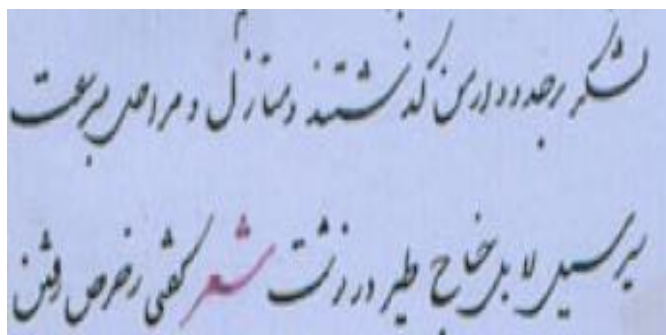 لشکر بر حدود ارمن گذشتند و منازل و مراحل بسرعت
سیر سیل لا بل بجناح طیر در نوشت شعر گفتی ز حرص رفتن